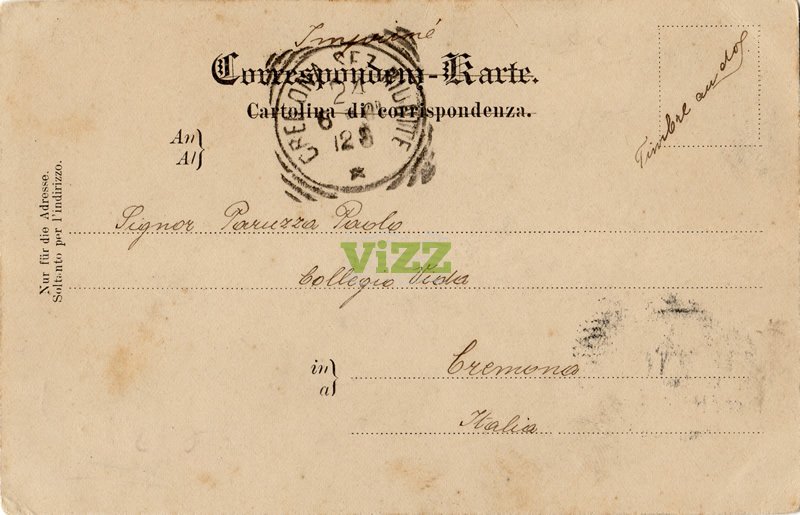 Imprimé
Correspondenz-Karte.
Cartolina di corrispondenza.
CREMONA SEZ. RIUNITE
24
128
Timbre au dos.
An
Al
Nur für die Adresse.
Soltanto per l'indirizzo.
Signor Paruzza Paolo
ViZZ
Collegio Vida
in
a
Cremona
Italia